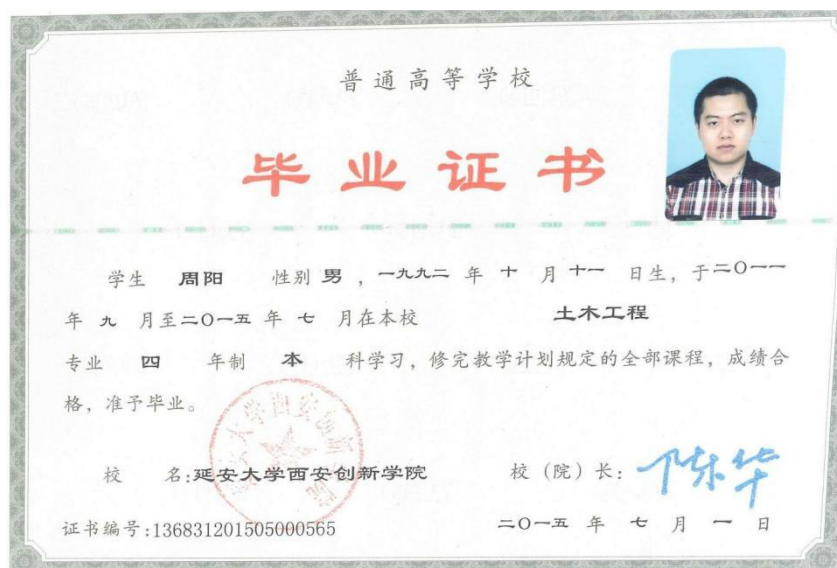 普通高等学校
毕业证书
学生 周阳 性别 男 ，一九九二 年 十 月 十一 日生，于二〇一一
年 九 月至二〇一五 年 七 月在本校 土木工程
专业 四 年制 本 科学习，修完教学计划规定的全部课程，成绩合
格，准予毕业。
校 名:延安大学西安创新学院 校（院）长：陈华
证书编号:136831201505000565 二〇一五 年 七 月 一 日
延安大学西安创新学院